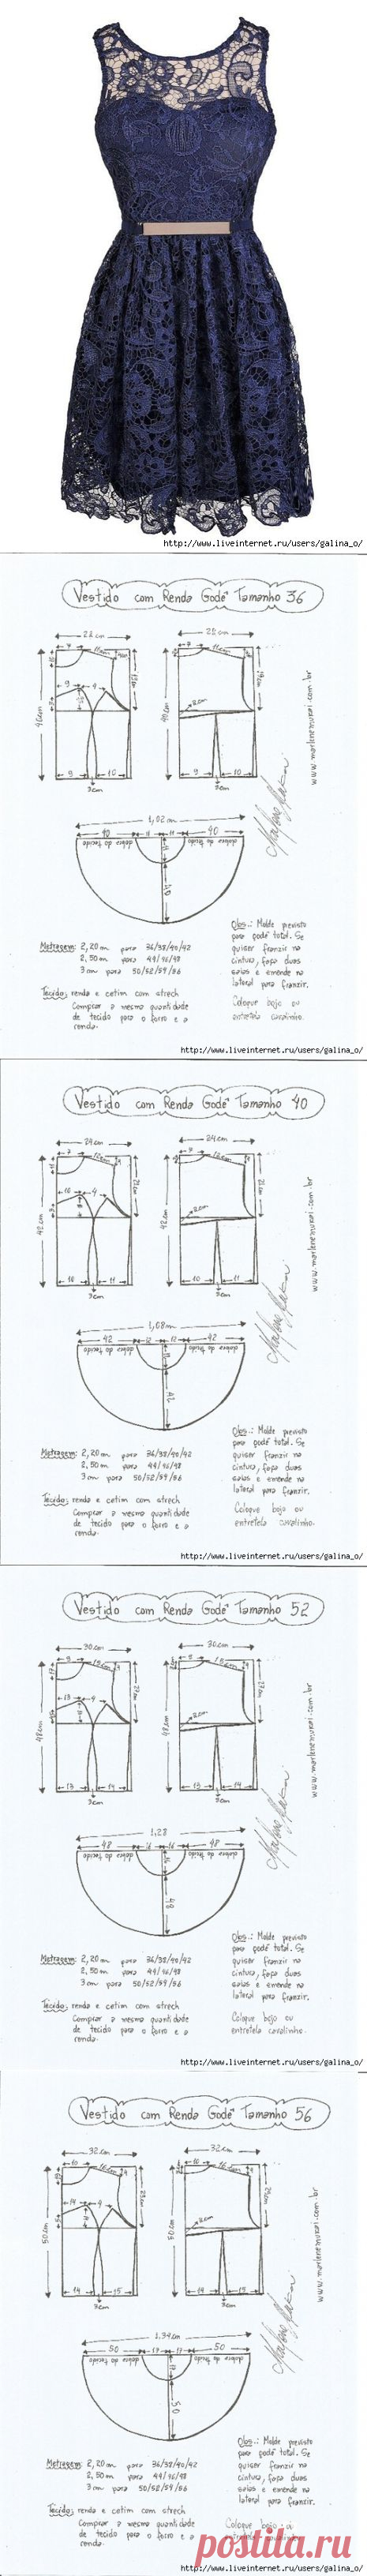 http://www.liveinternet.ru/users/galina_o/
Vestido com Renda Godê Tamanho 36
22cm
22cm
7
11cm
7
40cm
40cm
9
4
2cm
9
10
9
10
3cm
3cm
www.marlenemukai.com.br
1,02cm
40
11
11
40
dobra do tecido
dobra do tecido
40
Metragem: 2,20m para 36/38/40/42
2,50m para 44/46/48
3cm para 50/52/54/56
Tecido: renda e cetim com strech
Comprar a mesma quantidade
de tecido para o forro e a
renda.
Obs.: Molde previsto
para godê total. Se
quiser franzir na
cintura, faça duas
saias e emende na
lateral para franzir.
Coloque bojo ou
entretela cavalinho.
http://www.liveinternet.ru/users/galina_o/
Vestido com Renda Godê Tamanho 40
24cm
24cm
7
12cm
7
12cm
42cm
42cm
10
4
2cm
10
11
10
11
3cm
3cm
www.marlenemukai.com.br
1,08m
42
12
12
42
dobra do tecido
dobra do tecido
42
Metragem: 2,20m para 36/38/40/42
2,50m para 44/46/48
3cm para 50/52/54/56
Tecido: renda e cetim com strech
Comprar a mesma quantidade
de tecido para o forro e a
renda.
Obs.: Molde previsto
para godê total. Se
quiser franzir na
cintura, faça duas
saias e emende na
lateral para franzir.
Coloque bojo ou
entretela cavalinho.
http://www.liveinternet.ru/users/galina_o/
Vestido com Renda Godê Tamanho 52
30cm
30cm
9
15cm
9
15cm
27cm
27cm
48cm
48cm
13
4
2cm
13
14
13
14
3cm
3cm
www.marlenemukai.com.br
1,28
48
16
16
48
dobra do tecido
dobra do tecido
48
Metragem: 2,20m para 36/38/40/42
2,50m para 44/46/48
3cm para 50/52/54/56
Tecido: renda e cetim com strech
Comprar a mesma quantidade
de tecido para o forro e a
renda.
Obs.: Molde previsto
para godê total. Se
quiser franzir na
cintura, faça duas
saias e emende na
lateral para franzir.
Coloque bojo ou
entretela cavalinho.
http://www.liveinternet.ru/users/galina_o/
Vestido com Renda Godê Tamanho 56
32cm
32cm
10
16cm
10
16cm
50cm
50cm
14
4
2cm
14
15
14
15
3cm
3cm
www.marlenemukai.com.br
1,34cm
50
17
17
50
dobra do tecido
dobra do tecido
17
50
Metragem: 2,20m para 36/38/40/42
2,50m para 44/46/48
3cm para 50/52/54/56
Tecido: renda e cetim com strech
Comprar a mesma quantidade
de tecido para o forro e a
renda.
Obs.: Molde previsto
para godê total. Se
quiser franzir na
cintura, faça duas
saias e emende na
lateral para franzir.
Coloque bojo
postila.ru
http://www.liveinternet.ru/users/galina_o/